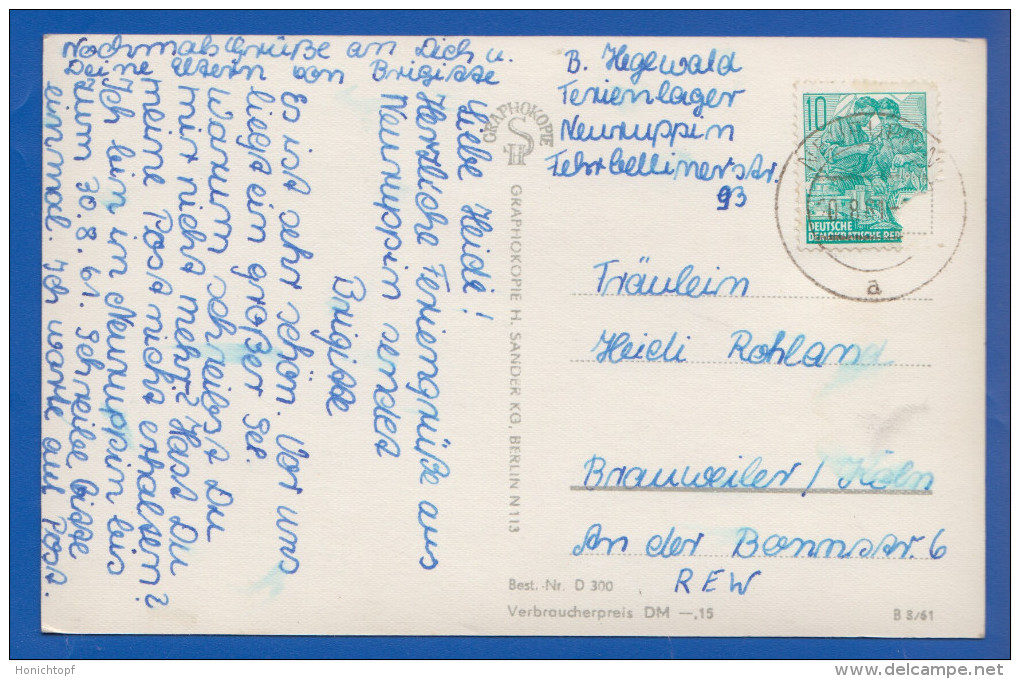 Nochmals Grüße an Dich u.
Deine Eltern von Brigitte
Liebe Heidi!
Herzliche Feriengrüße aus
Neuruppin sendet
Brigitte
Es ist sehr schön. Vor uns
liegt ein großer See.
Warum schreibst Du
mir nicht mehr? Hast Du
meine Post nicht erhalten?
Ich bin in Neuruppin bis
zum 30.8.61. Schreibe bitte
einmal. Ich warte auf Post.
GRAPHOKOPIE
GRAPHOKOPIE H. SANDER KG, BERLIN N 113
B. Hegewald
Ferienlager
Neuruppin
Fehrbellinerstr.
93
10
DEUTSCHE
DEMOKRATISCHE REP
a
Fräulein
Heidi Rohland
Brauweiler / Köln
An der Bonnstr. 6
REW
Best.-Nr. D 300
Verbraucherpreis DM —,15
B 8/61
Honichtopf
www.delcampe.net